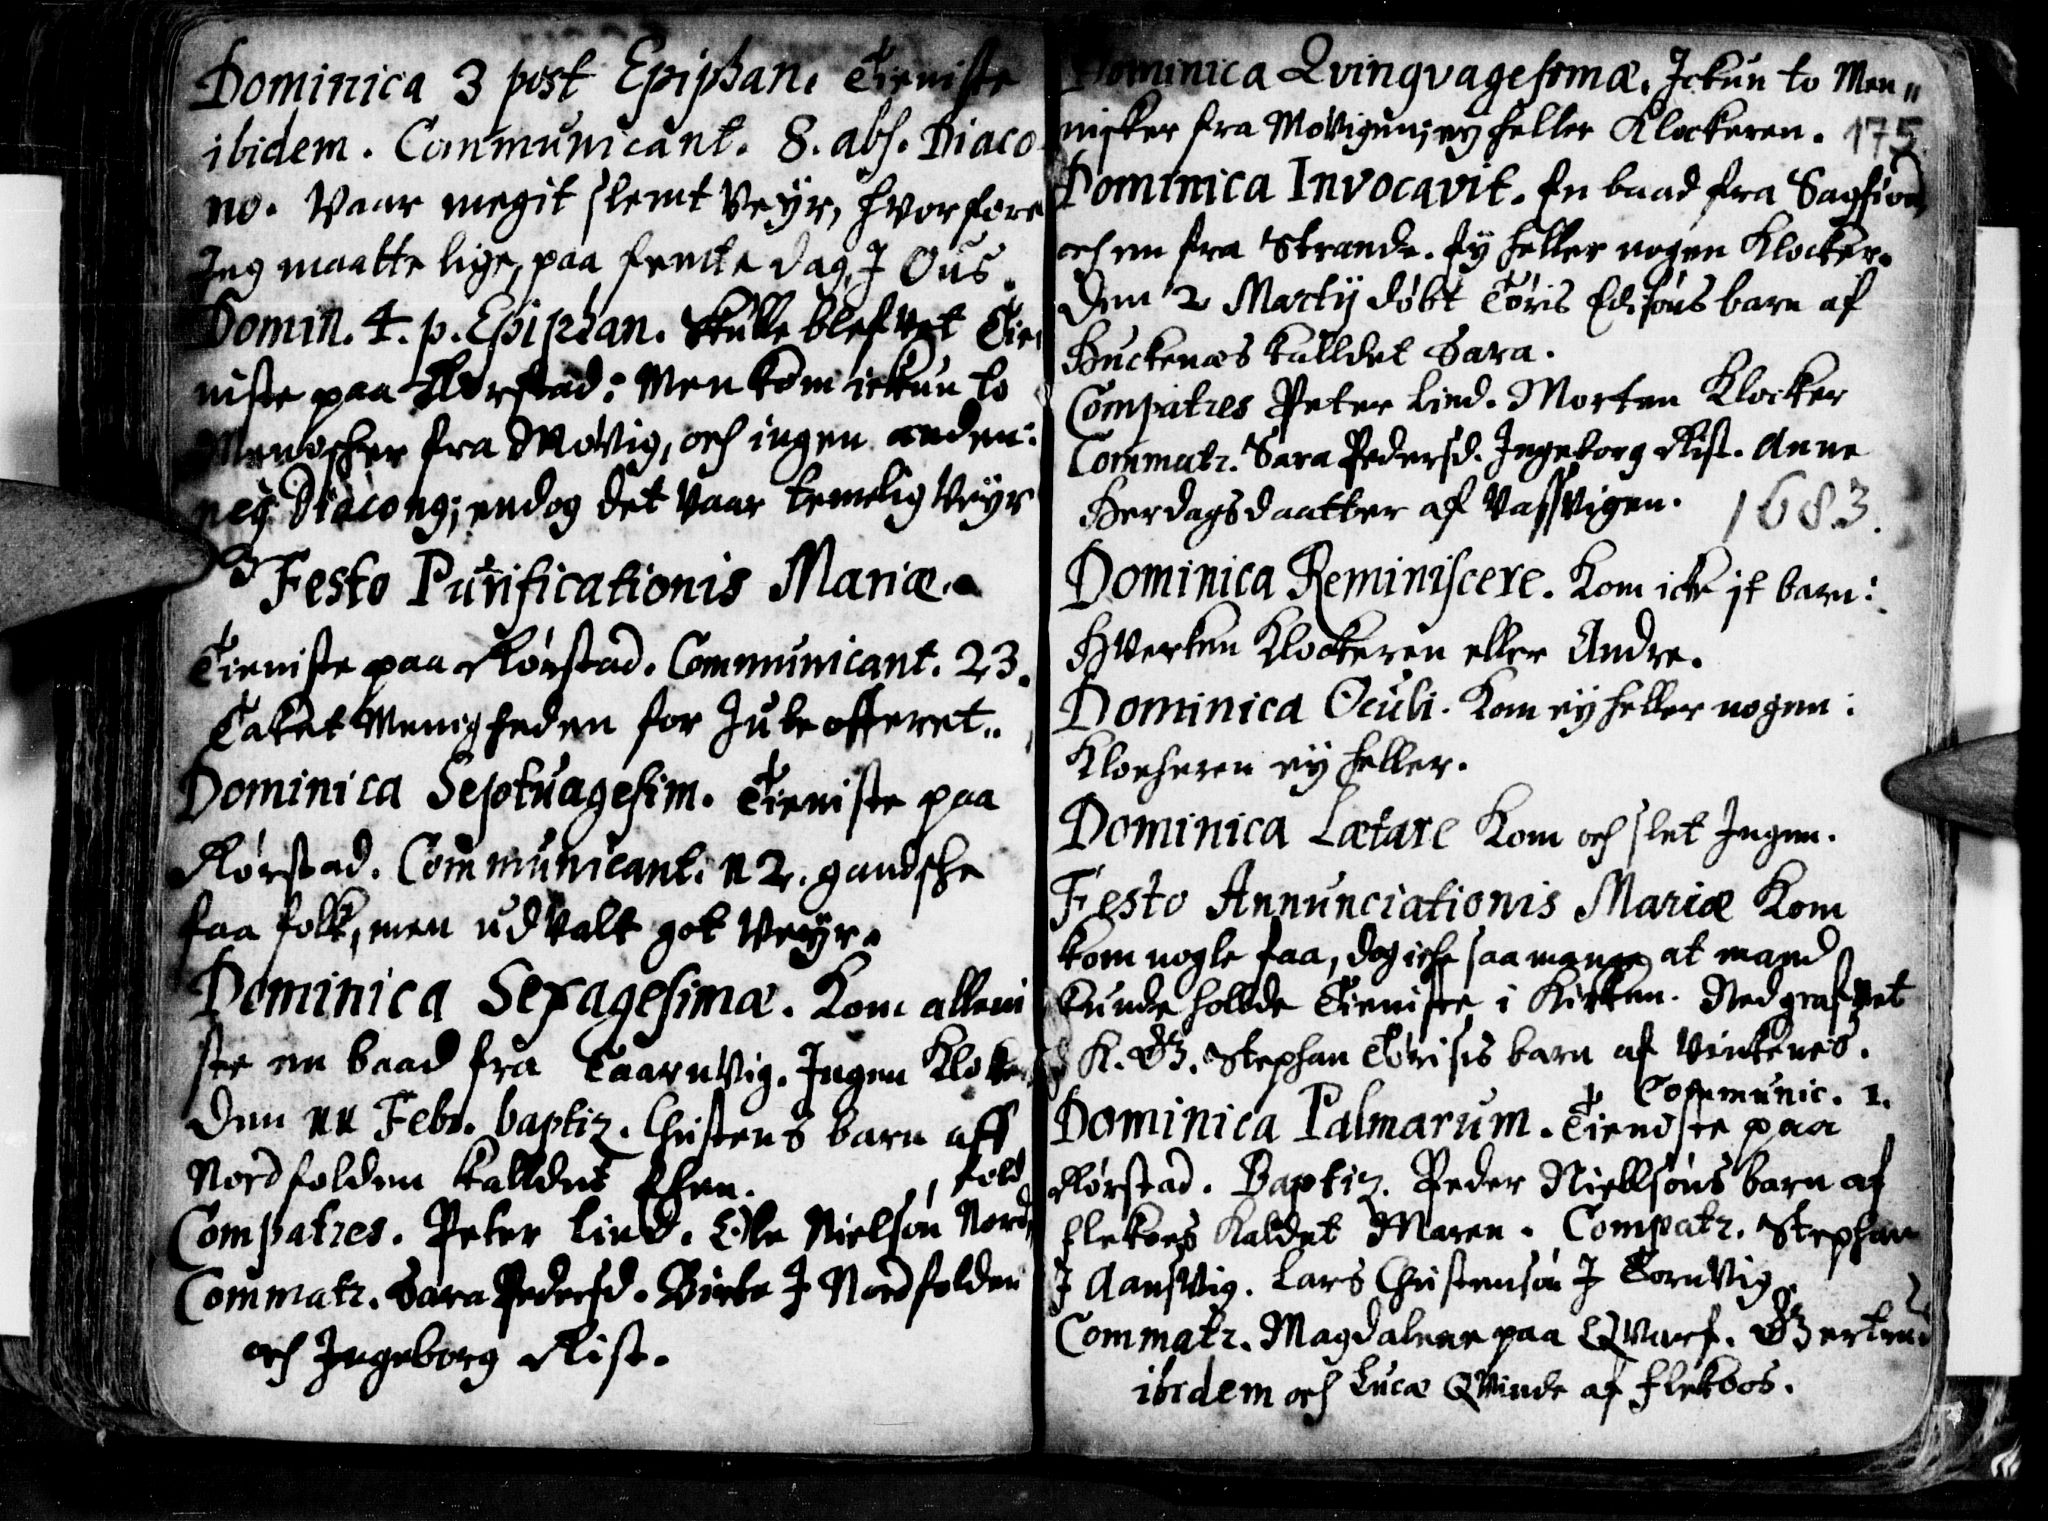 Dominica 3 post Epiphan. Tieniste
ibidem. Communicant. 8. abs. Diaco
no. Vaar megit slemt Veÿr, hvorfore
Jeg maatte lige, paa femte dag, J Ous.
Domin. 4. p. Epiphan. Skulle blefvet Tie
niste paa Rørstad: Men kom ickun to
Menescher fra Movig, och ingen anden:
neq. Diacong; endog det Vaar temelig Veÿr
Festo Purificationis Mariæ.
Tieniste paa Rørstad. Communicant. 23.
Taket Menigheden for Jule offeret.
Dominica Septuagesim. Tieniste paa
Rørstad. Communicant. 12. gandsche
faa folk, men udValt got Veÿr.
Dominica Sexagesimæ. Kom alleni
ste en baad fra Taarnvig. Ingen Klocker
Den 11 Febr. baptiz. Christens barn aff
Nordfolden kalldet Ehen.
fold
Compatres. Peter Lind. Ole Nielsøn Nord
Commatr. Sara Pedersd. Birte J Nordfolden
och Ingeborg Rist.
Dominica Qvinqvagesimæ. Ickun to Men
nisker fra Movigen; ey heller Klockeren. 175
Dominica Invocavit. En baad fra Sagfiord
och en fra Strande. Ey heller nogen Klocker.
Den 2 Martij døbt Tøris Edisøns barn af
Buckenæs kalldet Sara.
Compatres Peter Lind. Morten Klocker
Commatr. Sara Pedersd. Ingeborg Rist. Anne
Herdagsdaatter af Vassvigen. 1683.
Dominica Reminiscere. Kom ick it barn:
Hverken Klockeren eller Andre.
Dominica Oculi. Kom ey heller nogen:
Klocheren ey heller.
Dominica Lætare Kom och slet Ingen.
Festo Annunciationis Mariæ Kom
kom nogle faa, dog iche saa mange at mand
kunde hollde Tieniste i Kirken. Nedgrafvet
K. G. Stephan Tørisis barn af Vinkenes.
Communic. 1.
Dominica Palmarum. Tieniste paa
Rørstad. Baptiz. Peder Niellsøns barn af
Elekoes Kaldet Maren. Compatr. Stephan
J Aansvig. Lars Christensøn J Tornvig.
Commatr. Magdalene paa Qvarf. Gertrud
ibidem och Lucæ Qvinde af Elekoos.